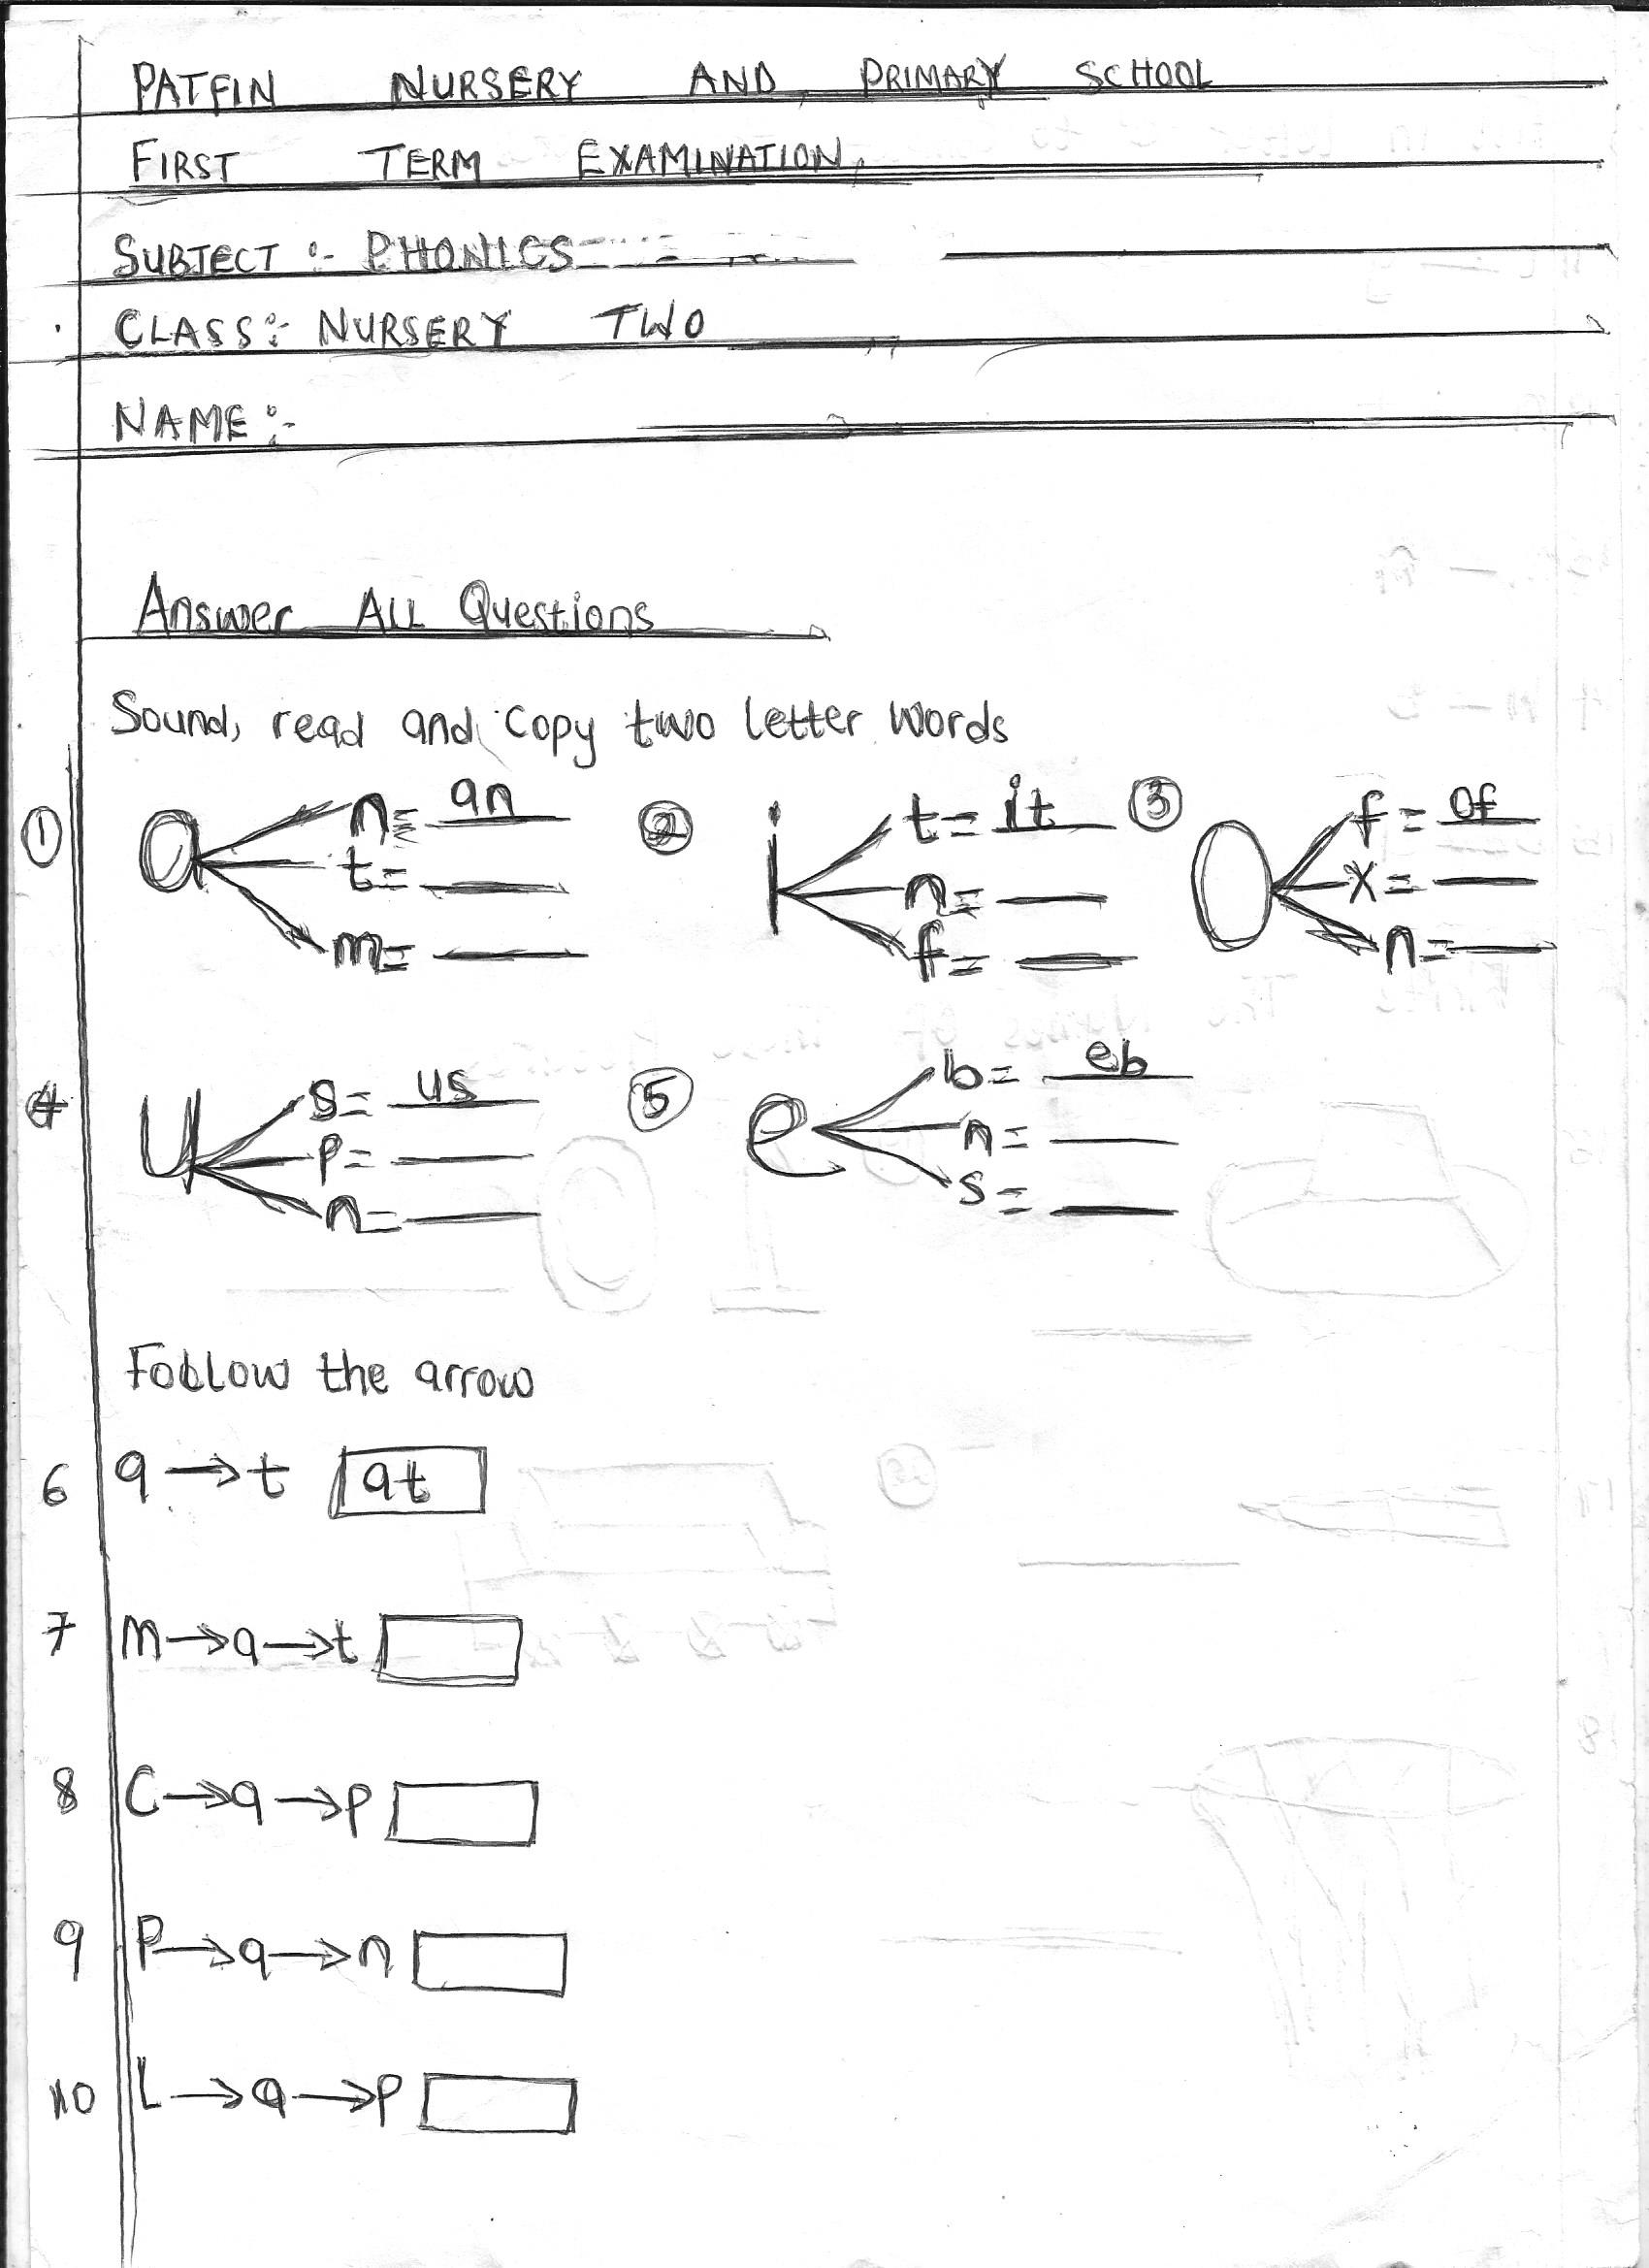 PATFIN NURSERY AND PRIMARY SCHOOL
FIRST TERM EXAMINATION
SUBJECT :- PHONICS
CLASS :- NURSERY TWO
NAME :-
Answer ALL Questions
Sound, read and copy two letter words
① a n= an ② i t= it ③ o f= of
t= n= x=
m= f= n=
4 u s= us ⑤ e b= eb
p= n=
n= s=
Follow the arrow
6 a→t at
7 m→a→t
8 C→a→p
9 P→a→n
10 L→a→p